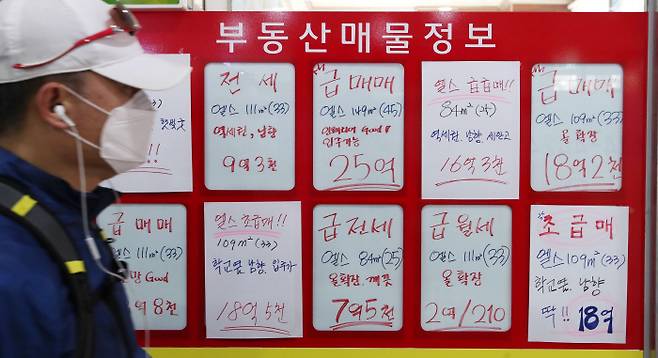 부동산매물정보
!!
전세
엘스 111m²(33)
역세권, 남향
9억3천
급매매
엘스 149m²(45)
인테리어 Good!
입주가능
25억
엘스 급급매!!
84m²(25)
역세권, 남향, 세안고
16억3천
급매매
엘스 109m²(33)
올확장
18억2천
급매매
엘스 111m²(33)
Good
8천
엘스 초급매!!
109m²(33)
학교옆, 남향, 입주가
18억5천
급전세
엘스 84m²(25)
올확장, 깨끗
7억5천
급월세
엘스 111m²(33)
올확장
2억/210
초급매
엘스 109m²(33)
학교옆, 남향
딱!! 18억